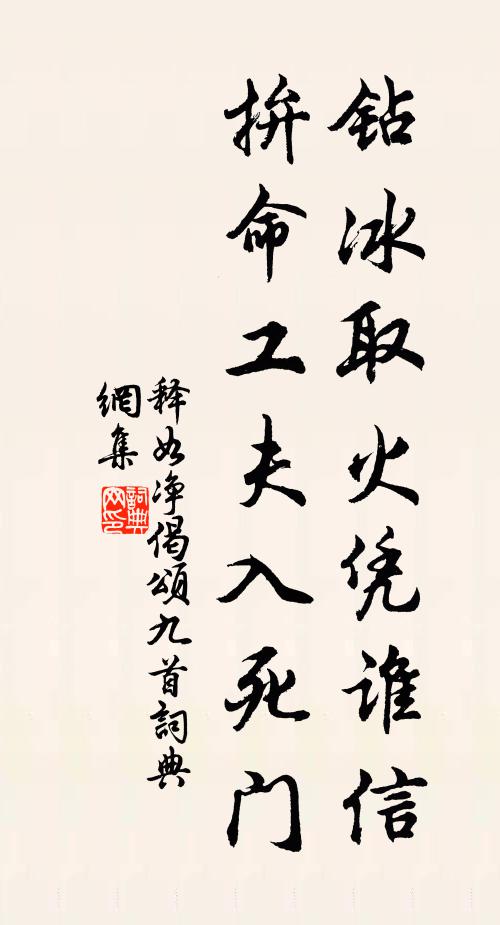 钻冰取火凭谁信
拚命工夫入死门
释如净偈颂九首詞典
網集
詞典
网印